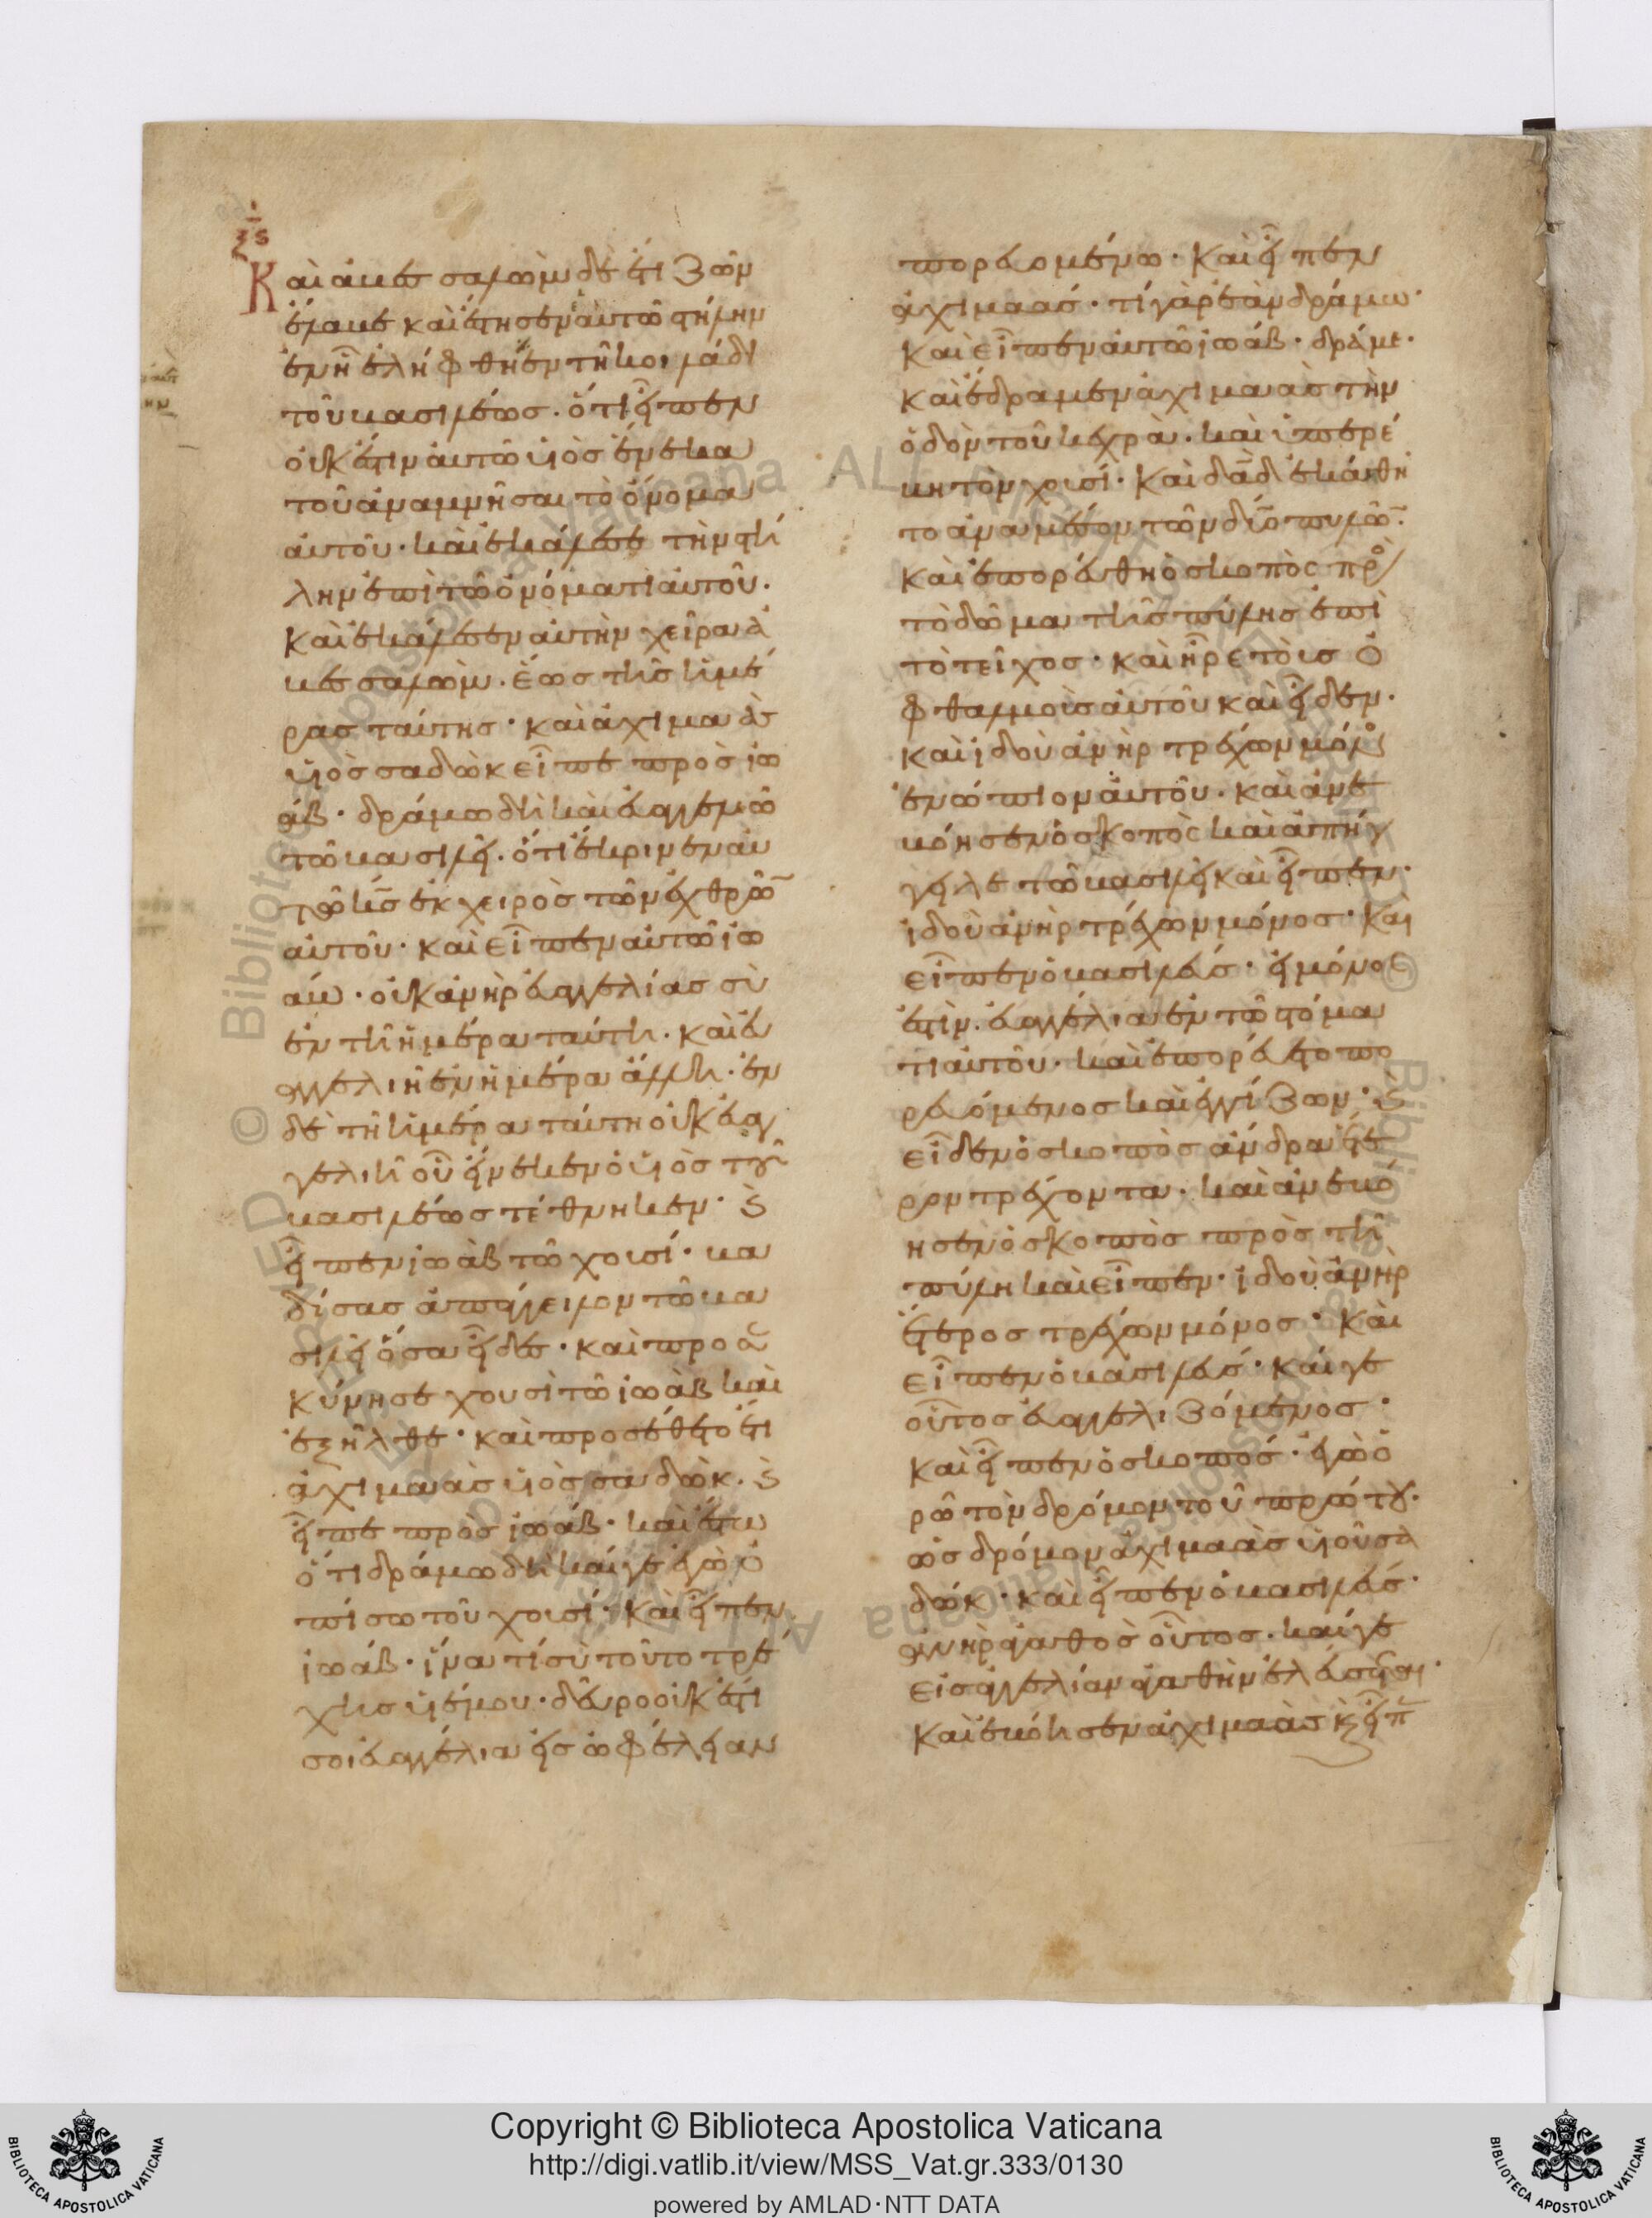 ξς
Καὶ ἀβεσσαλὼμ δὲ ἔτι ζῶν
ἔλαβε καὶ ἔστησεν αὑτῶ στήλην
ἐν ἧ ἐλήφθη ἐν τῆ κοιλάδι
τοῦ βασιλέως· ὅτι εἶπεν
οὐκ ἔστιν αὐτῶ υἱὸσ ἕνεκα
τοῦ ἀναμνῆσαι τὸ ὄνομα
αὐτοῦ· καὶ ἐκάλεσε τὴν στή
λην ἐπὶ τῶ ὀνόματι αὐτοῦ·
καὶ ἐκάλεσεν αὐτὴν χεῖρα ἀ
βεσσαλὼμ· ἕωσ τῆσ ἡμέ
ρασ ταύτησ· καὶ ἀχιμαὰσ
υἱὸσ σαδὼκ εἶπε πρὸσ ἰω
ὰβ· δράμω δὴ καὶ εὐαγγελιῶ
τῶ βασιλεῖ· ὅτι ἔκρινεν αὐ
τῶ κ̅ς̅ ἐκ χειρὸσ τῶν ἐχθρῶ̅
αὐτοῦ· καὶ εἶπεν αὐτῶ ἰω
άβ· οὐκ ἀνὴρ εὐαγγελίασ σὺ
ἐν τῆ ἡμέρα ταύτη· καὶ εὐ
αγγελιῆ ἐν ἡμέρα ἄλλη· ἐν
δὲ τῆ ἡμέρα ταύτη οὐκ εὐαγ
γελιῆ οὗ εἵνεκεν ὁ υἱὸσ τοῦ
βασιλέωσ τέθνηκεν· ϗ
εἶπεν ἰωὰβ τῶ χουσί· βα
δίσασ ἀπάγγειλον τῶ βα
σιλεῖ ὅσα εἶδεσ· καὶ προσε
κύνησε χουσὶ τῶ ἰωὰβ καὶ
ἐξῆλθε· καὶ προσέθετο ἔτι
ἀχιμαὰσ υἱὸσ σαδὼκ· ϗ
εἶπε πρὸσ ἰωάβ· καὶ ἔστω
ὅτι δράμω δὴ καίγε ἐγὼ ὀ
πίσω τοῦ χουσί· καὶ εἶπεν
ἰωάβ· ἵνα τί σὺ τοῦτο τρέ
χεισ υἱέ μου· δεῦρο οὐκ ἔστι
σοι εὐαγγέλια εἰσ ὠφέλειαν
πορευομένω· καὶ εἶπεν
ἀχιμαάσ· τί γὰρ ἐὰν δράμω·
καὶ εἶπεν αὐτῶ ἰωάβ· δράμε·
καὶ ἔδραμεν ἀχιμαὰσ τὴν
ὁδὸν τοῦ κεχρὰ· καὶ ὑπερέ
βη τὸν χουσί· καὶ δα̅δ ἐκάθη
το ἀναμέσον τῶν δύο πυλῶ̅·
καὶ ἐπορεύθη ὁ σκοπὸς πρὸς
τὸ δῶμα τῆσ πύλησ ἐπὶ
τὸ τεῖχοσ· καὶ ἦρε τοὺσ ὀ
φθαλμοὺσ αὐτοῦ καὶ εἶδεν·
καὶ ἰδοὺ ἀνὴρ τρέχων μόνος
ἐνώπιον αὐτοῦ· καὶ ἀνε
βόησεν ὁ σκοπὸς καὶ ἀπήγ
γειλε τῶ βασιλεῖ καὶ εἶπεν·
ἰδοὺ ἀνὴρ τρέχων μόνοσ· καὶ
εἶπεν ὁ βασιλεύσ· εἰ μόνος
ἐστὶν· εὐαγγέλια ἐν τῶ στόμα
τι αὐτοῦ· καὶ ἐπορεύετο πο
ρευόμενοσ καὶ ἐγγίζων· ϗ
εἶδεν ὁ σκοπὸσ ἄνδρα ἕτε
ρον τρέχοντα· καὶ ἀνεβό
ησεν ὁ σκοπὸσ πρὸσ τῆ
πύλη καὶ εἶπεν· ἰδοὺ ἀνὴρ
ἕτεροσ τρέχων μόνοσ· καὶ
εἶπεν ὁ βασιλεύσ· καίγε
οὗτοσ εὐαγγελιζόμενοσ·
καὶ εἶπεν ὁ σκοπόσ· ἐγὼ ὁ
ρῶ τὸν δρόμον τοῦ πρώτου·
ὡσ δρόμον ἀχιμαὰσ υἱοῦ σα
δώκ· καὶ εἶπεν ὁ βασιλεύσ·
ἀνὴρ ἀγαθὸσ οὗτοσ· καίγε
εἰσ ἀγγελίαν ἀγαθὴν ἐλεύσεται·
καὶ ἐβόησεν ἀχιμαὰσ ϗ εἶπ
Copyright © Biblioteca Apostolica Vaticana
http://digi.vatlib.it/view/MSS_Vat.gr.333/0130
powered by AMLAD·NTT DATA